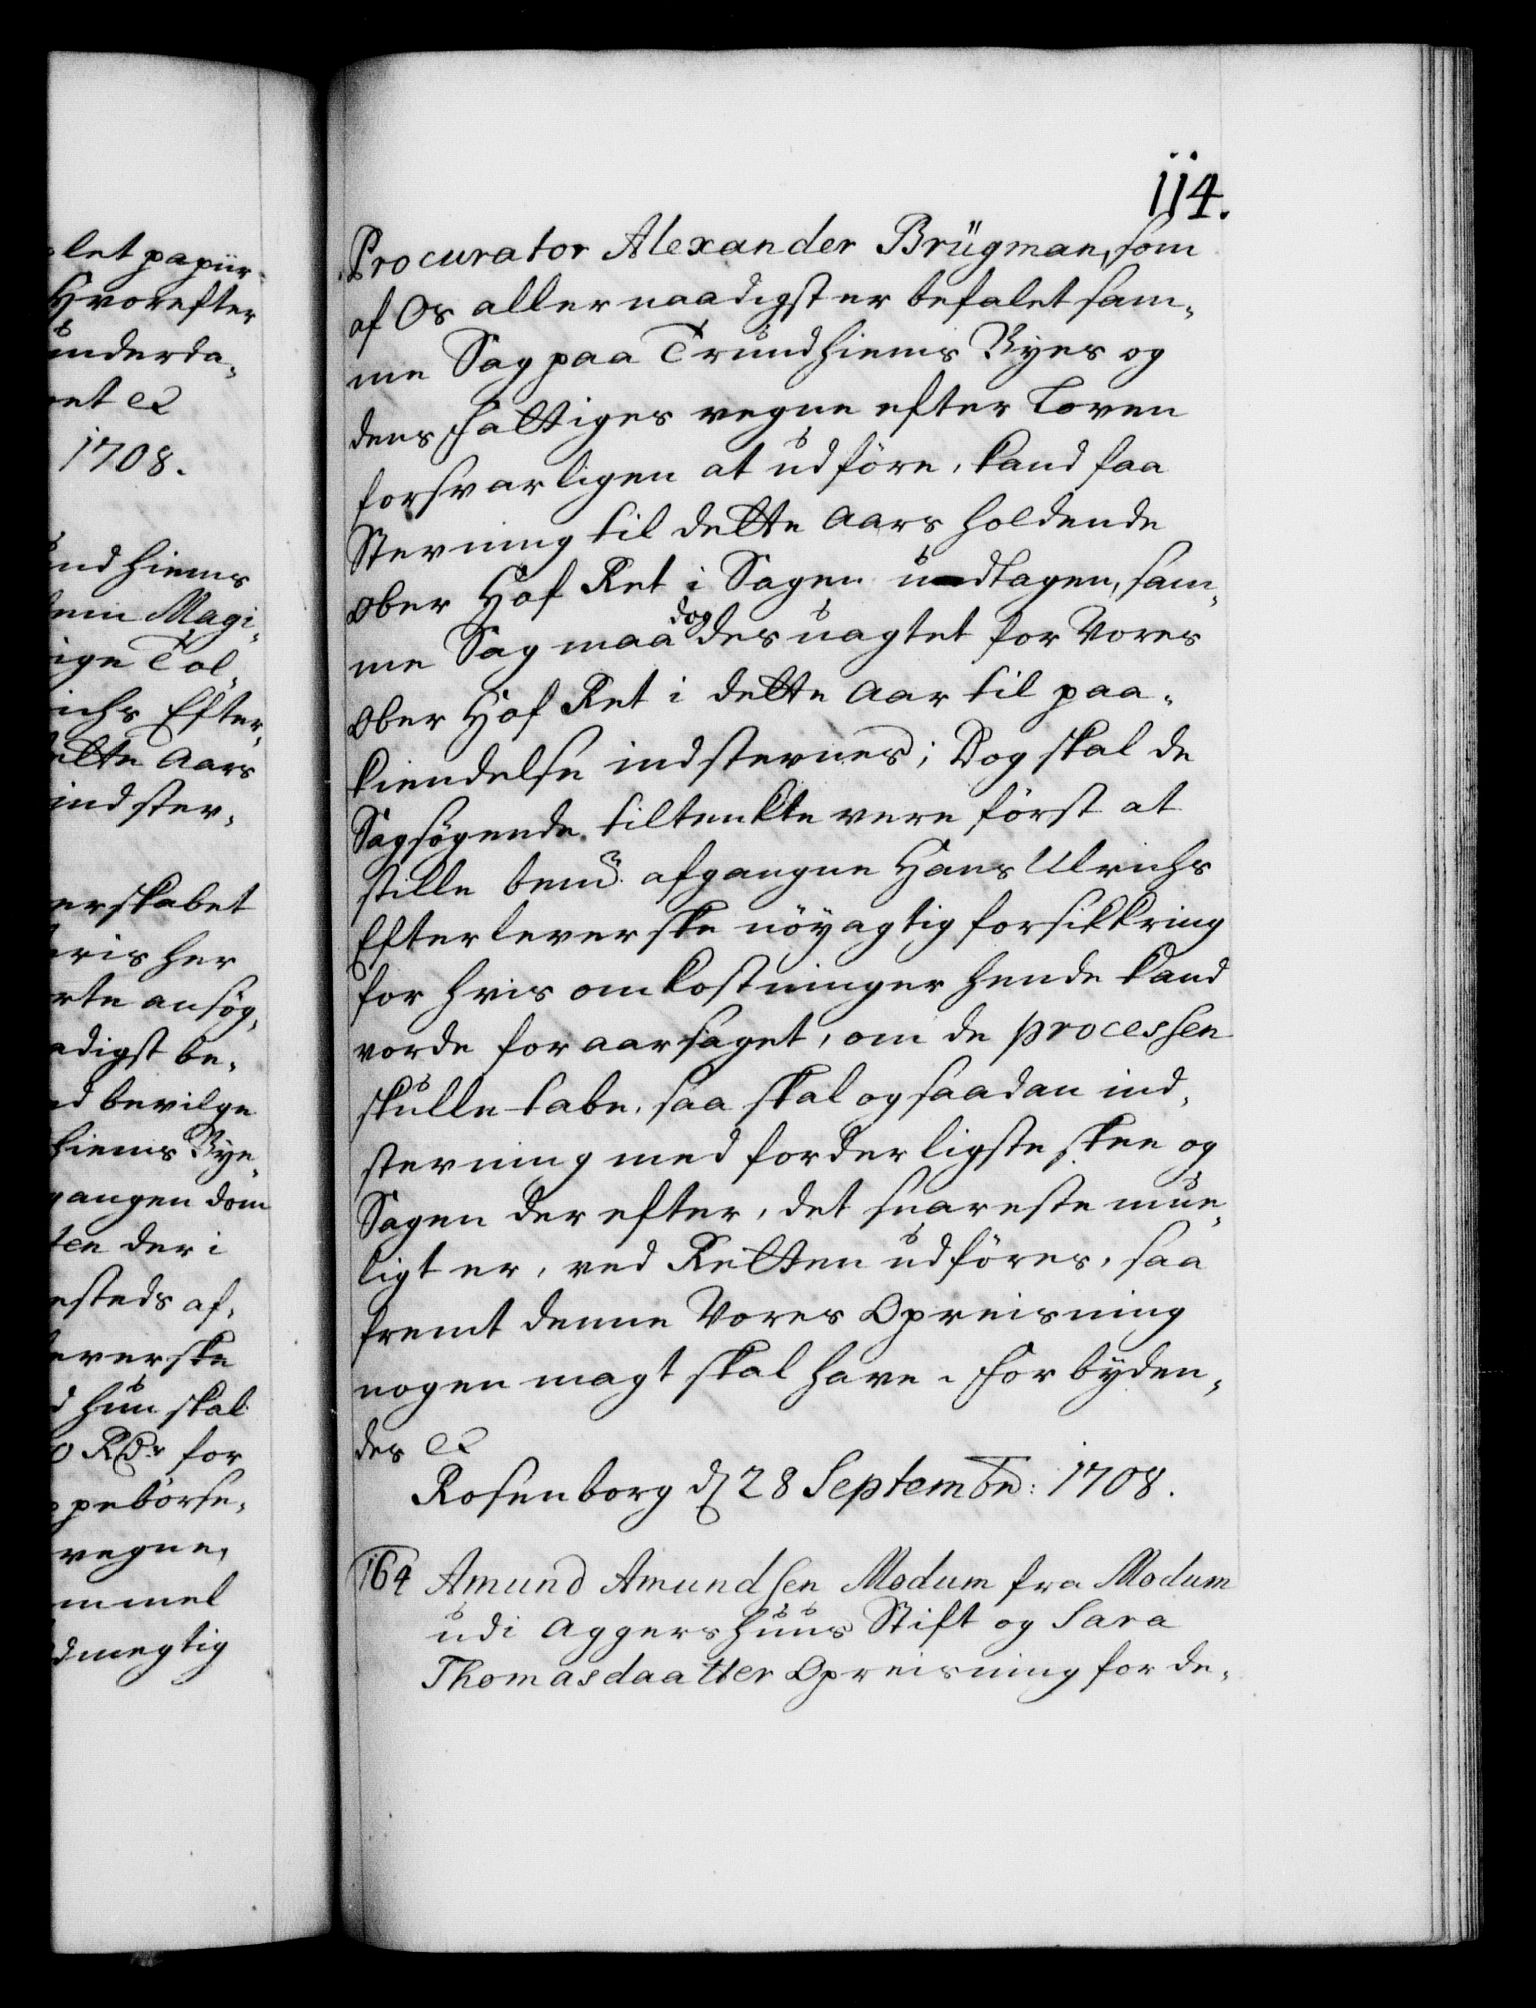 let papiir
Hvorefter
underda-
et ec
1708.
undhiems
em Magi-
ige Tol-
richs Efter-
dette Aars
indstev-
erskabet
vris her
rte ansøg-
adigst be-
d bevilge
hiems Bye-
gangen dom
ten der i
esteds af-
everske
d hun skal
0 Rdr for
ppebörse-
vegne,
mmel
dmegtig
114.
Procurator Alexander Brügman, som
af Os allernaadigst er befalet sam-
me Sag paa Trundhiems Byes og
dens Fattiges vegne efter Loven
forsvarligen at udföre, kand faa
Stevning til dette Aars holdende
Ober Hof Ret i Sagen udtagen, sam-
me Sag maa dog des uagtet for Vores
Ober Hof Ret i dette Aar til paa-
kiendelse indstevnes; Dog skal de
Sagsøgende tiltenkte vere först at
stille bemte afgangne Hans Ulrichs
Efterleverske nöyagtig forsikkring
for hvis omkostninger hende kand
vorde foraarsaget, om de processen
skulle tabe, saa skal og saadan ind-
stevning med forderligste skee og
Sagen der efter, det snareste mue-
ligt er, ved Retten udföres, saa
fremt denne Vores Opreisning
nogen magt skal have. Forbyden-
des ec
Rosenborg d 28 Septembr: 1708.
164 Amund Amundsen Modum fra Modum
udi Aggershuus Stift og Sara
Thomasdaatter Opreisning for de-